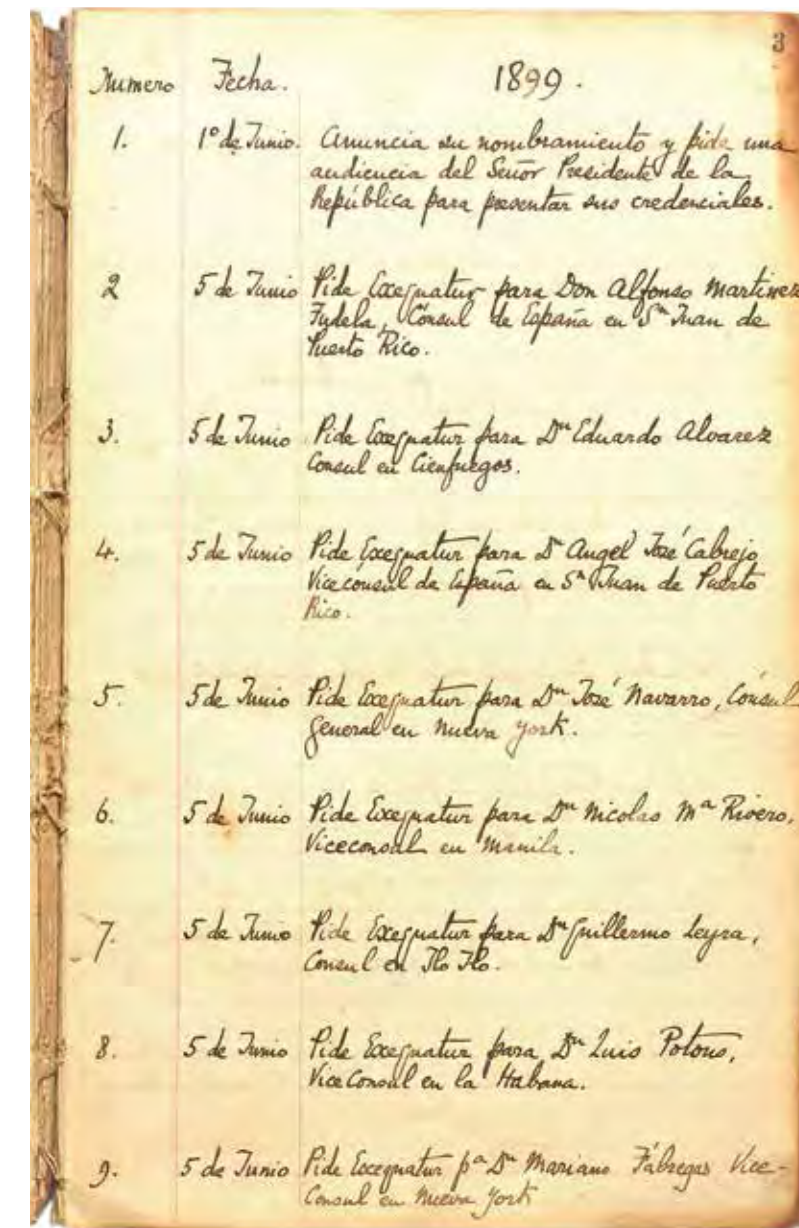 3
Numero Fecha. 1899.
1. 1º de Junio. Anuncia su nombramiento y pide una
audiencia del Señor Presidente de la
República para presentar sus credenciales.
2 5 de Junio Pide Exequatur para Don Alfonso Martinez
Tudela, Cónsul de España en Sn Juan de
Puerto Rico.
3. 5 de Junio Pide Exequatur para Dn Eduardo Alvarez
Consul en Cienfuegos.
4. 5 de Junio Pide Exequatur para Dn Angel José Cabrejo
Viceconsul de España en Sn Juan de Puerto
Rico.
5. 5 de Junio Pide Exequatur para Dn José Navarro, Cónsul
General en Nueva York.
6. 5 de Junio Pide Exequatur para Dn Nicolas Mª Rivero,
Viceconsul en Manila.
7. 5 de Junio Pide Exequatur para Dn Guillermo Leyra,
Consul en Ilo Ilo.
8. 5 de Junio Pide Exequatur para Dn Luis Potous,
ViceConsul en la Habana.
9. 5 de Junio Pide Exequatur pª Dn Mariano Fábregas Vice-
Consul en Nueva York